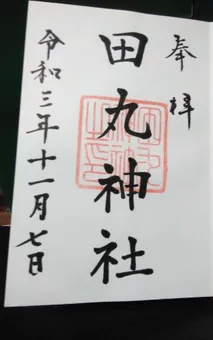 奉拝
田丸神社
令和三年十一月七日